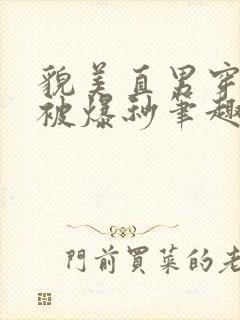 貌美直男穿
被爆秒笔趣
門前買菜的老